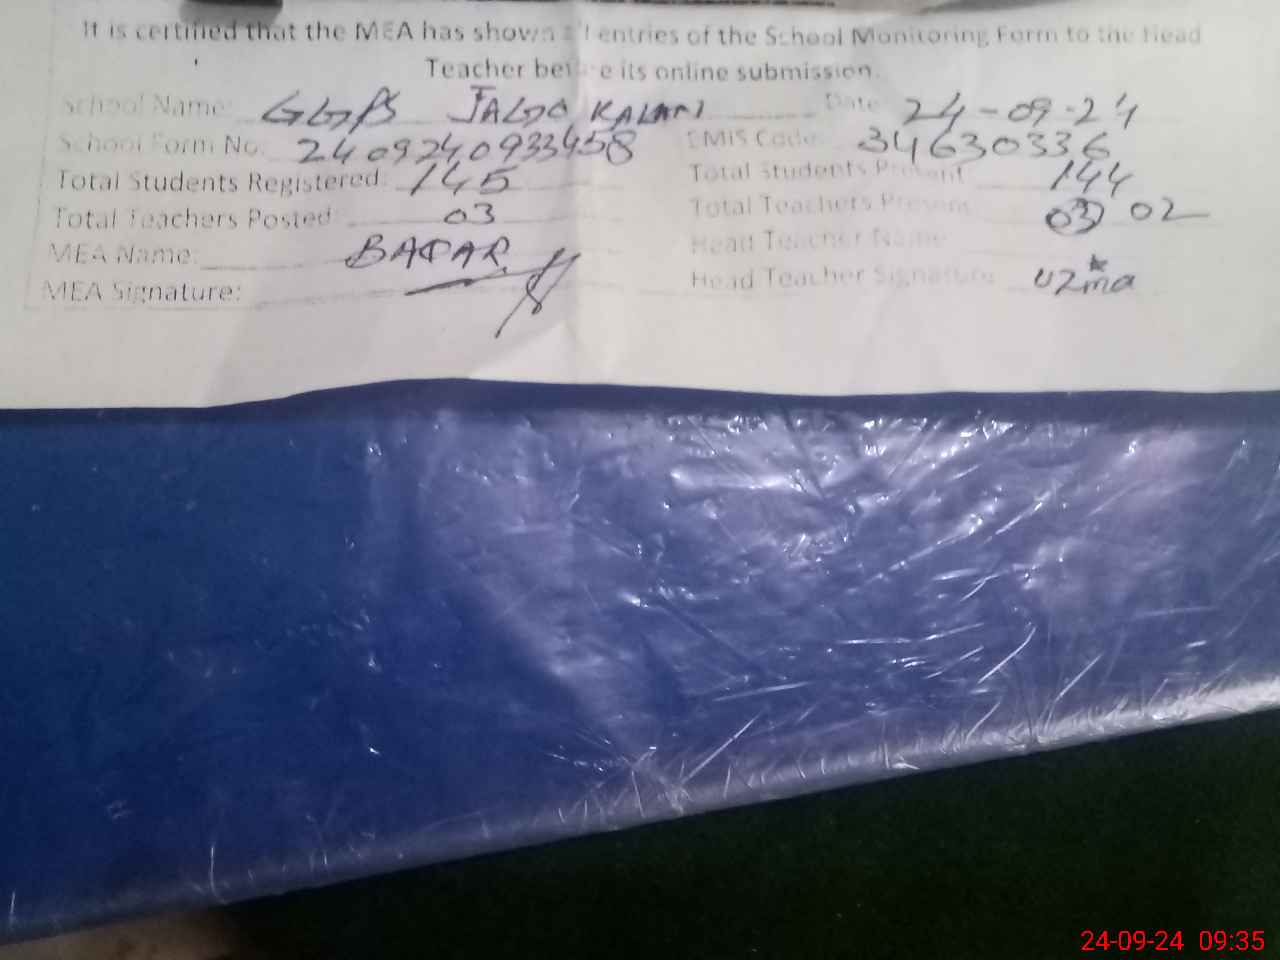 It is certified that the MEA has shown all entries of the School Monitoring Form to the Head
Teacher before its online submission.
School Name: GGPS JAGGO KALAN Date 24-09-24
School Form No: 2409240933458 EMIS Code: 34630336
Total Students Registered: 145 Total Students Present 144
Total Teachers Posted: 03 Total Teachers Present 03 02
MEA Name: BAQAR Head Teacher Name
MEA Signature: Head Teacher Signature Uzma
24-09-24 09:35